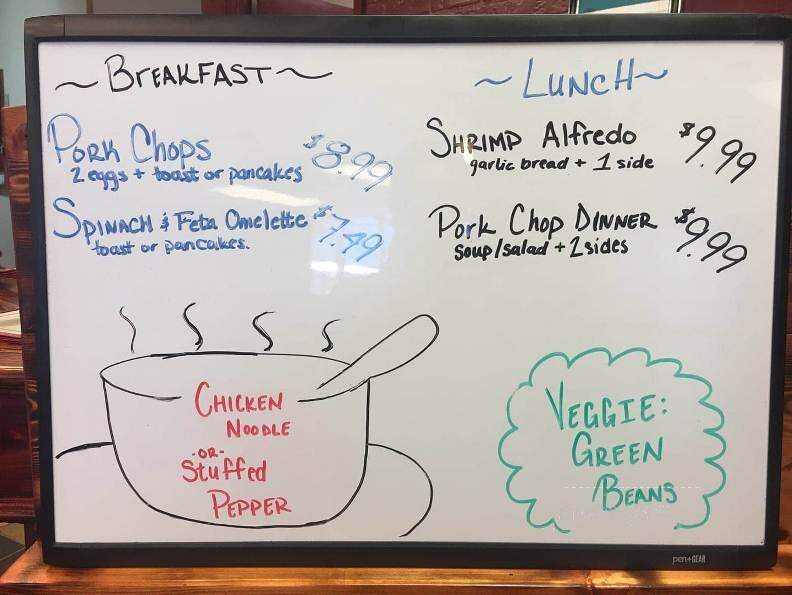 ~ BREAKFAST ~
PORK Chops $8.99
2 eggs + toast or pancakes
SPINACH & Feta Omelette $7.49
toast or pancakes.
~ LUNCH ~
SHRIMP Alfredo $9.99
garlic bread + 1 side
Pork Chop DINNER $9.99
soup/salad + 2 sides
CHICKEN
NOODLE
-OR-
Stuffed
PEPPER
VEGGIE:
GREEN
BEANS
pen+GEAR